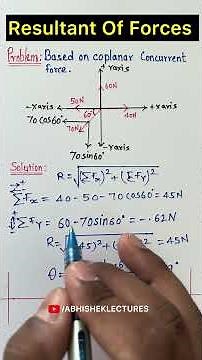 Resultant Of Forces
Problem: Based on coplanar Concurrent
force.
+Yaxis
60N
-Xaxis
50N
40N
+Xaxis
60°
70cos60°
70N
-Yaxis
70sin60°
Solution:
R = √(ΣFx)² + (ΣFy)²
ΣFx = 40 - 50 - 70 cos60° = 45N
ΣFY = 60 - 70sin60° = -.62N
= 45N
θ =
/ABHISHEKLECTURES